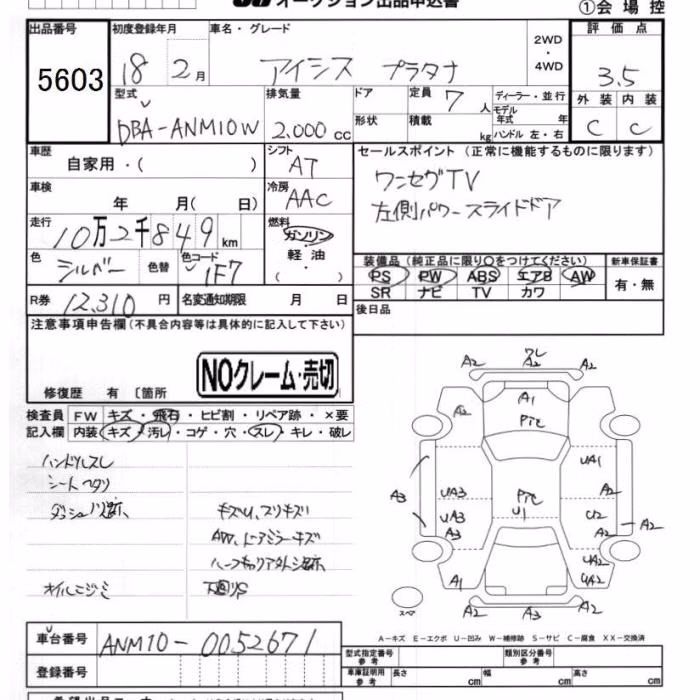 オークション出品申込書
①会場控
出品番号
5603
初度登録年月
18年2月
車名・グレード
アイシス プラタナ
2WD
・
4WD
評価点
3.5
外装 内装
C C
型式
DBA-ANM10W
排気量
2.000cc
ドア
形状
定員 7人
積載 kg
ディーラー・並行
モデル年式 年
ハンドル 左・右
車歴
自家用・( )
シフト
AT
セールスポイント (正常に機能するものに限ります)
ワンセグTV
左側パワースライドドア
車検
年 月( 日)
冷房
AAC
走行
10万2千849km
燃料
ガソリン
軽油
( )
色
シルバー
色替
色コード
1F7
装備品 (純正品に限り○をつけてください)
PS PW ABS エアB AW
SR ナビ TV カワ
新車保証書
有・無
R券 12,310円
名変通知期限 月 日
後日品
注意事項申告欄(不具合内容等は具体的に記入して下さい)
NOクレーム・売切
修復歴 有 〔箇所
検査員
記入欄
FW キズ・飛石・ヒビ割・リペア跡・×要
内装 キズ・汚レ・コゲ・穴・スレ・キレ・破レ
ハンドルスレ
シートヘタリ
キズU、スリキズ
AW、ドアミラーキズ
オイルニジミ
下廻りS
A2 ワレ A2
A2 A2
A2 A1
Pﾅﾋ
UA1
A3 UA3 Pﾅﾋ A2
UA3 U1 U2
A3 A2 A2
UA2
A1 UA2
スペ A2 A3 A2
A-キズ E-エクボ U-凹み W-補修跡 S-サビ C-腐食 XX-交換済
車台番号
ANM10-0052671
登録番号
型式指定番号
参考
類別区分番号
参考
車庫証明用
参考
長さ 幅 高さ